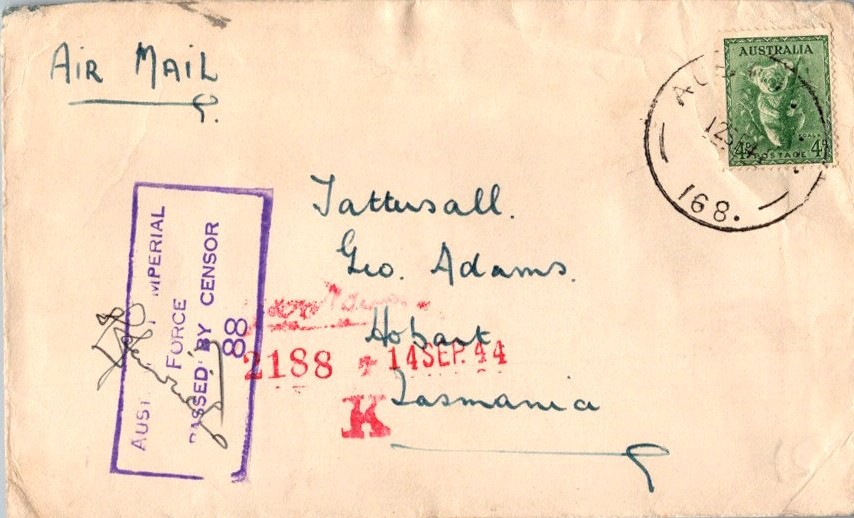 AIR MAIL
AUSTRALIA
KOALA
4D POSTAGE 4D
AUST
168.
Tattersall.
Geo. Adams.
Hobart
Tasmania
AUST IMPERIAL
FORCE
PASSED BY CENSOR
88
2188 14 SEP. 44
K